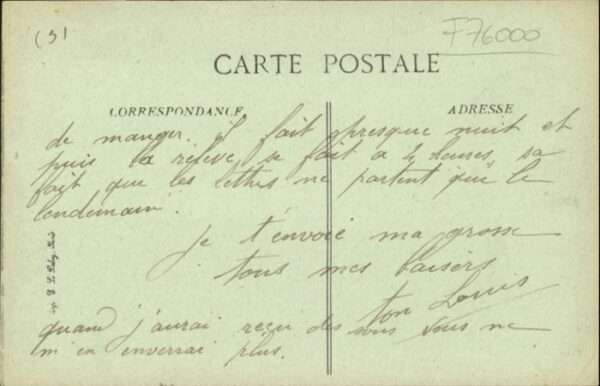 (3)
F76000
CARTE POSTALE
CORRESPONDANCE
ADRESSE
de manger. il fait presque nuit et
puis la relève se fait a 2 heures, sa
fait que les lettres ne partent que le
lendemain.
je t'envoie ma grosse
tous mes baisers
ton Louis
quand j'aurai reçu des sous tu ne
m'en enverrai plus.